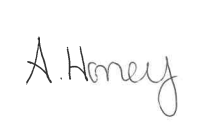 A. Honey